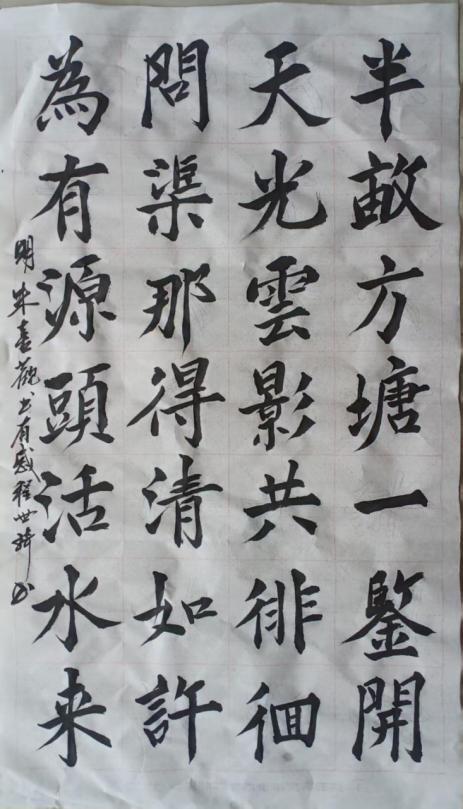 半畝方塘一鑒開
天光雲影共徘徊
問渠那得清如許
為有源頭活水来
明朱熹觀书有感程世琦书